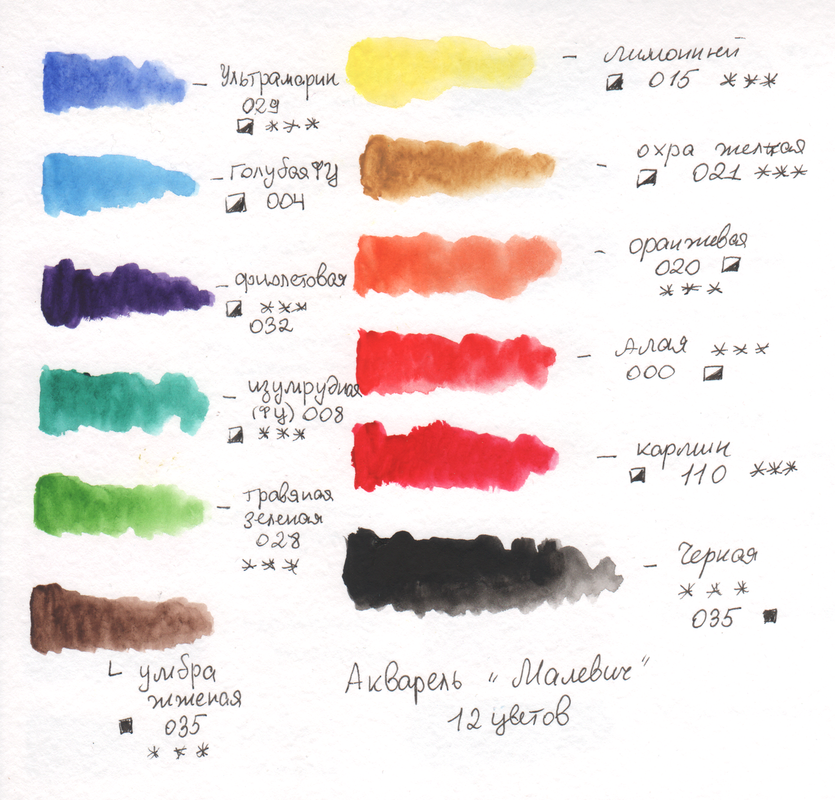 Ультрамарин
029
***
Голубая ФЦ
004
фиолетовая
***
032
изумрудная
(ФЦ) 008
***
травяная
зеленая
028
***
умбра
жженая
035
***
лимонный
015 ***
охра желтая
021 ***
оранжевая
020
***
Алая ***
000
кармин
110 ***
Черная
***
035
Акварель "Малевич"
12 цветов